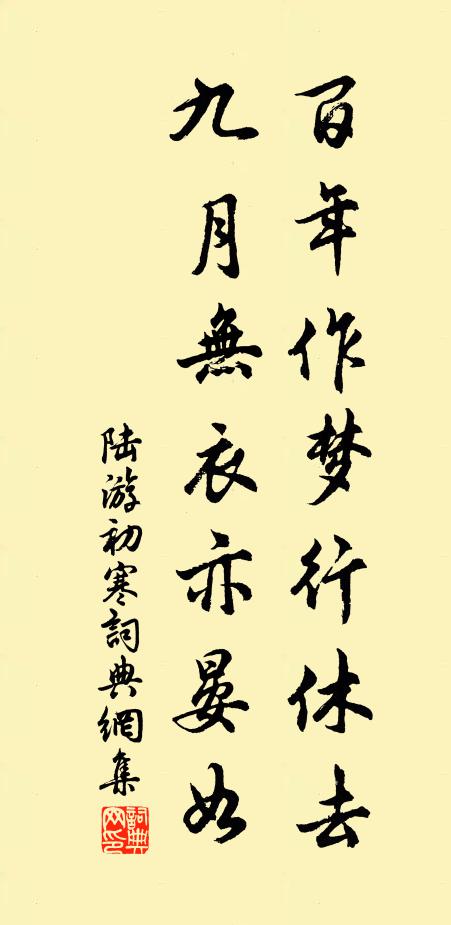 百年作梦行休去
九月無衣亦晏如
陆游初寒詞典網集
詞典网印